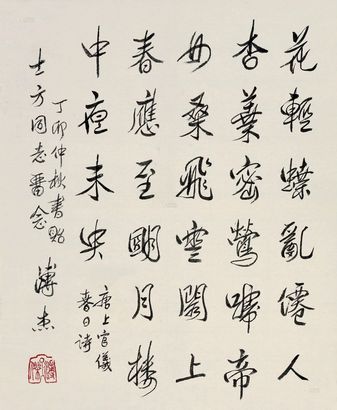 花輕蝶亂僊人
杏葉密鶯啼帝
女桑飛雲閣上
春應至朙月樓
中夜未央
唐上官儀
春日詩
丁卯仲秋書貽
士方同志畱念
溥杰